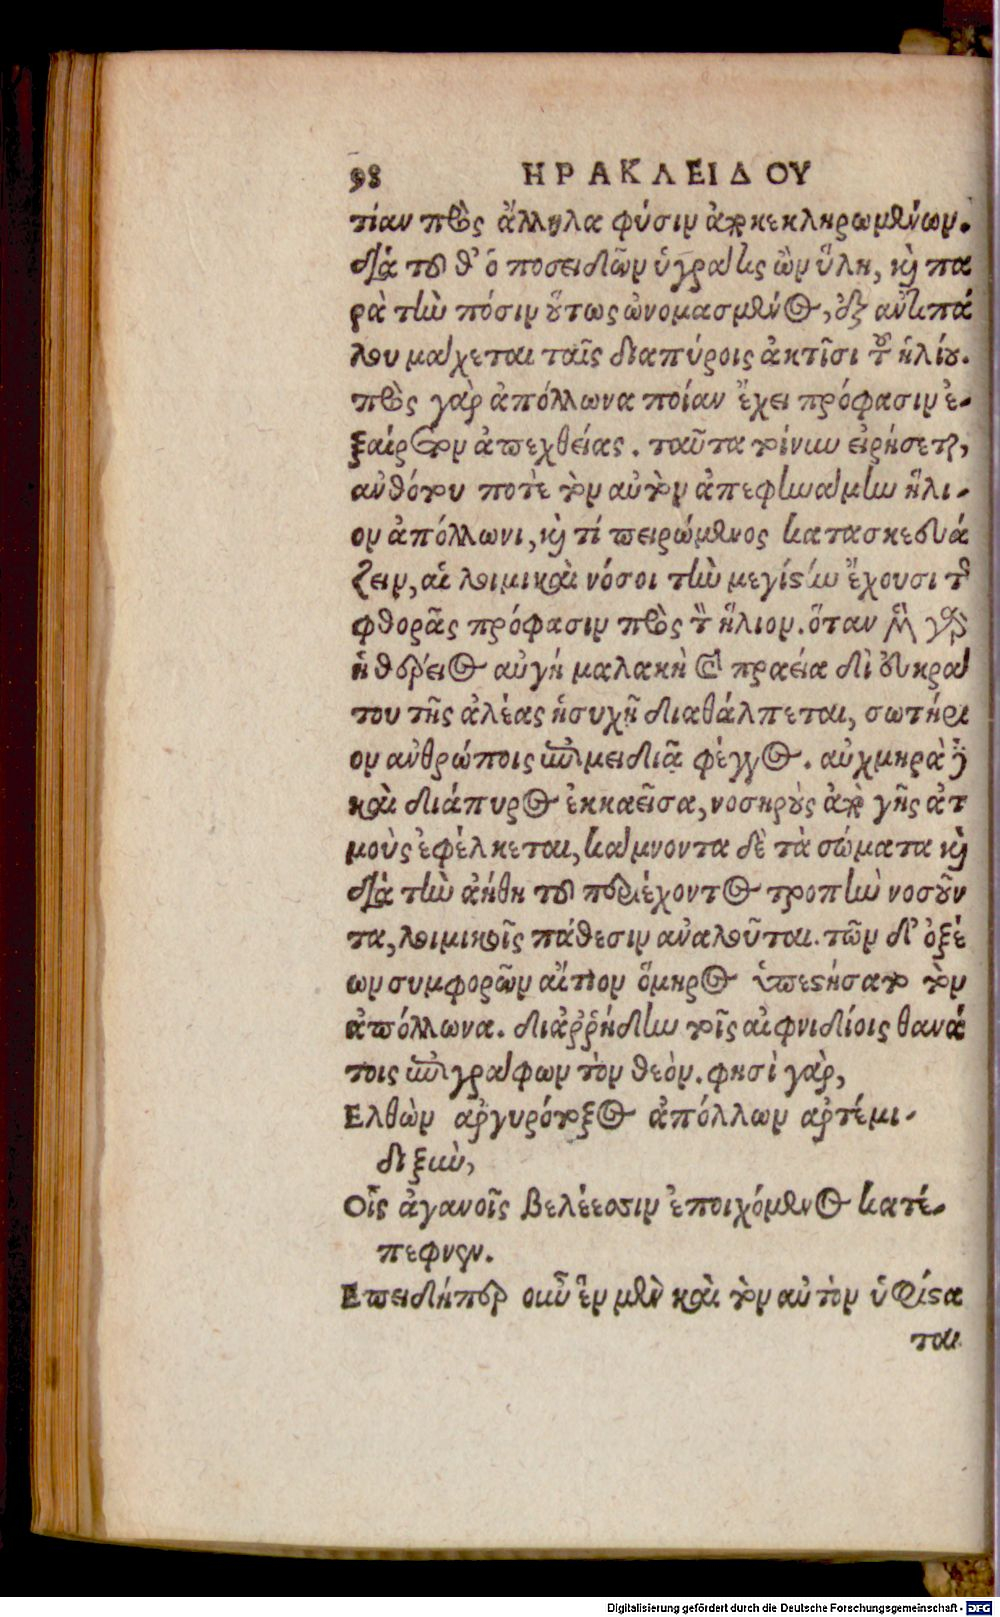 98 ΗΡΑΚΛΕΙΔΟΥ
τίαν πρὸς ἄλληλα φύσιν ἀποκεκληρωμένων.
διὰ τοῦθ' ὁ ποσειδῶν ὑγρά τις ὢν ὕλη, καὶ πα
ρὰ τὴν πόσιν οὕτως ὠνομασμένος, ἐξ ἀντιπά
λου μάχεται ταῖς διαπύροις ἀκτῖσι τοῦ ἡλίου.
πρὸς γὰρ ἀπόλλωνα ποίαν ἔχει πρόφασιν ἐ-
ξαίρετον ἀπεχθείας. ταῦτα τοίνυν εἰρήσεται,
ἀνθότου ποτὲ τὸν αὐτὸν ἀπεφηνάμην ἥλι-
ον ἀπόλλωνι, καὶ τί πειρώμενος κατασκευά
ζειν, αἱ λοιμικαὶ νόσοι τὴν μεγίστην ἔχουσι τῆς
φθορᾶς πρόφασιν πρὸς τὸν ἥλιον. ὅταν μὲν γὰρ
ἡ θέρειος αὐγή μαλακὴ καὶ πραεία δι' εὐκρά
του τῆς ἀλέας ἡσυχῇ διαθάλπεται, σωτήρι
ον ἀνθρώποις ἐπιμειδιᾷ φέγγος. αὐχμηρὰ δὲ
καὶ διάπυρος ἐκκαεῖσα, νοσηροὺς ἀπὸ γῆς ἀτ
μοὺς ἐφέλκεται, κάμνοντα δὲ τὰ σώματα καὶ
διὰ τὴν ἀήθη τοῦ περιέχοντος τροπὴν νοσοῦν
τα, λοιμικοῖς πάθεσιν ἀναλοῦται. τῶν δ' ὀξέ
ων συμφορῶν αἴτιον ὅμηρος ὑπεστήσατο τὸν
ἀπόλλωνα. διαῤῥήδην τοῖς αἰφνιδίοις θανά
τοις ἐπιγράφων τὸν θεόν. φησὶ γὰρ,
Ελθὼν ἀργυρότοξος ἀπόλλων ἀρτέμι-
δι ξὺν,
Οἷς ἀγανοῖς βελέεσσιν ἐποιχόμενος κατέ-
πεφνεν.
Επειδήπερ οὖν ἓν μὲν καὶ τὸν αὐτὸν ὑφίστα
ται
Digitalisierung gefördert durch die Deutsche Forschungsgemeinschaft - DFG